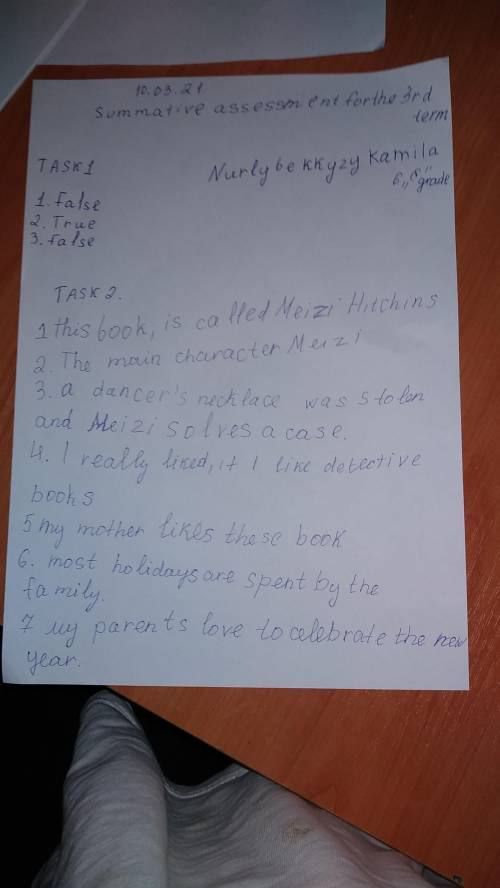 10.03.21
Summative assessment for the 3rd
term
TASK 1
Nurlybekkyzy Kamila
6 „ " grade
1. False
2. True
3. false
TASK 2.
1 this book, is called Meizi Hitchins
2. The main character Meizi
3. a dancer's necklace was stolen
and Meizi solves a case.
4. I really liked, it I like detective
books
5 my mother likes these book
6. most holidays are spent by the
family.
7 my parents love to celebrate the new
year.